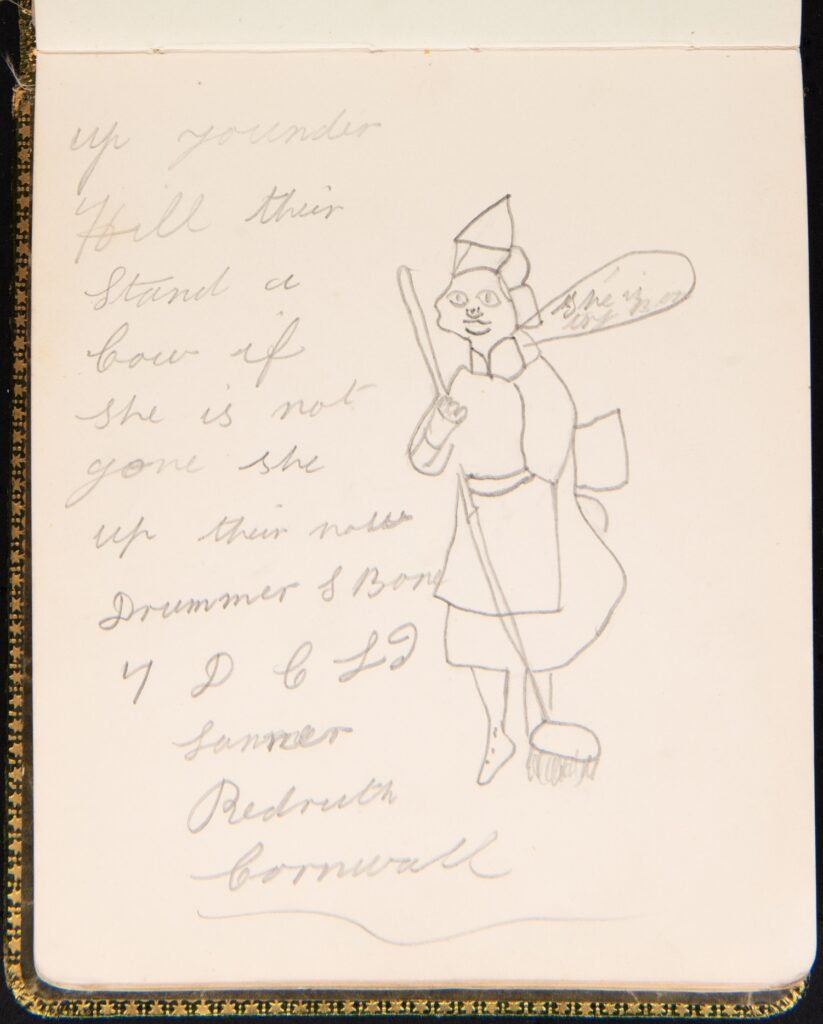 up younder
Hill their
stand a
cow if
she is not
gone she
up their now
Drummer S Bone
7 D C L I
Lanner
Redruth
Cornwall
she is